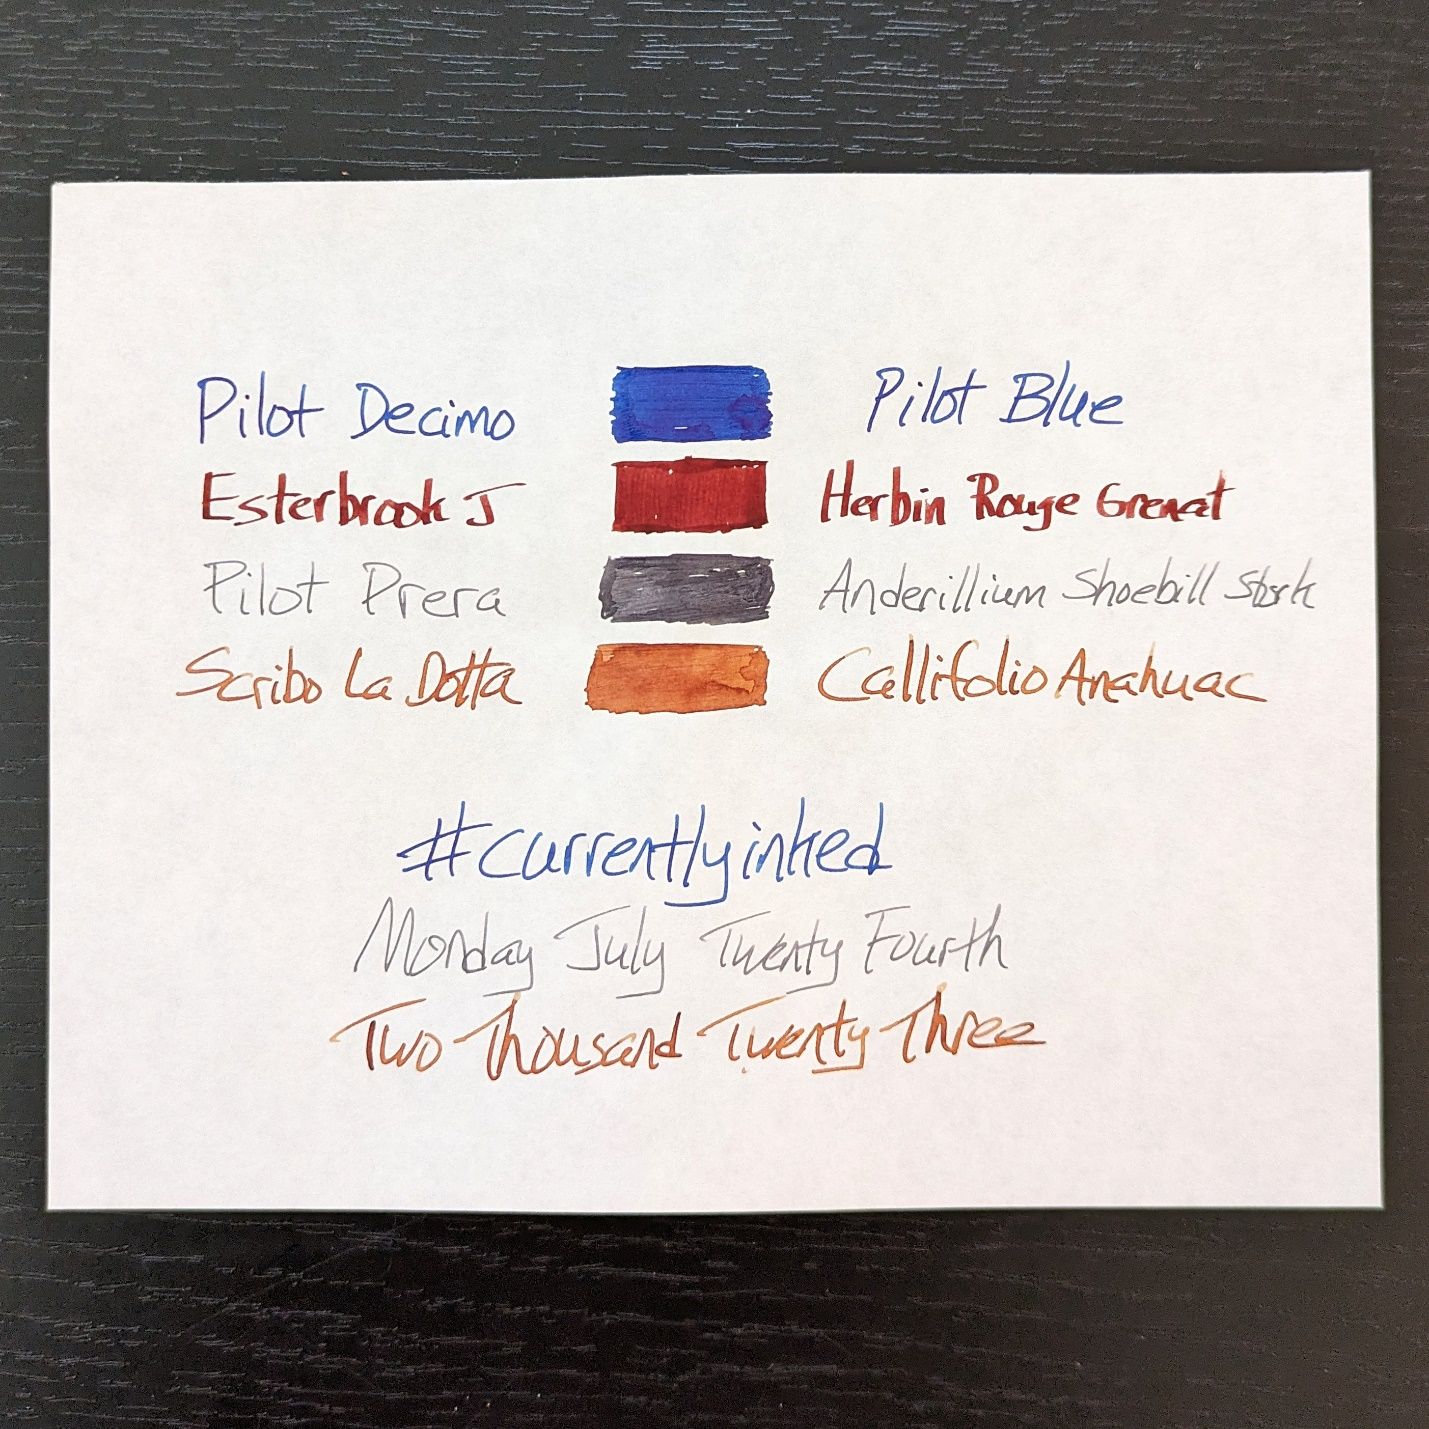 Pilot Decimo Pilot Blue
Esterbrook J Herbin Rouge Grenat
Pilot Prera Anderillium Shoebill Stork
Scribo La Dotta Callifolio Anahuac
#currentlyinked
Monday July Twenty Fourth
Two Thousand Twenty Three